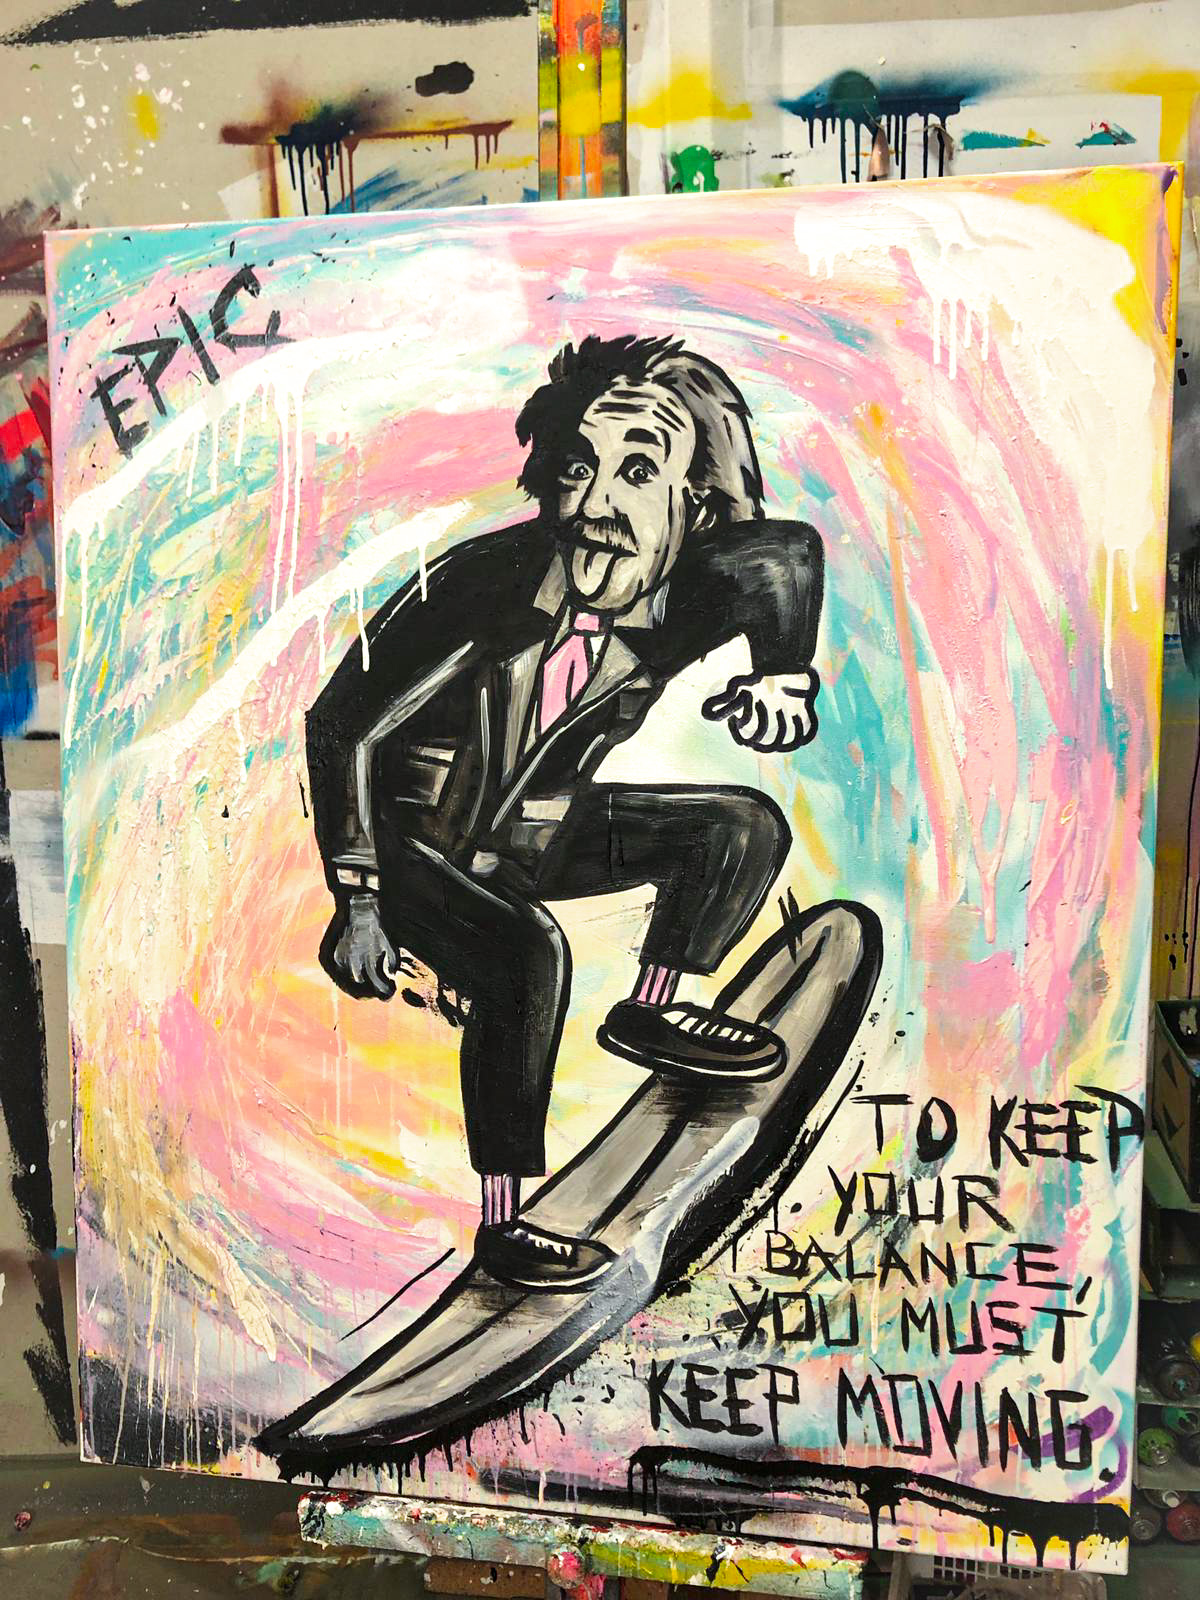 EPIC
TO KEEP
YOUR
BALANCE,
YOU MUST
KEEP MOVING.